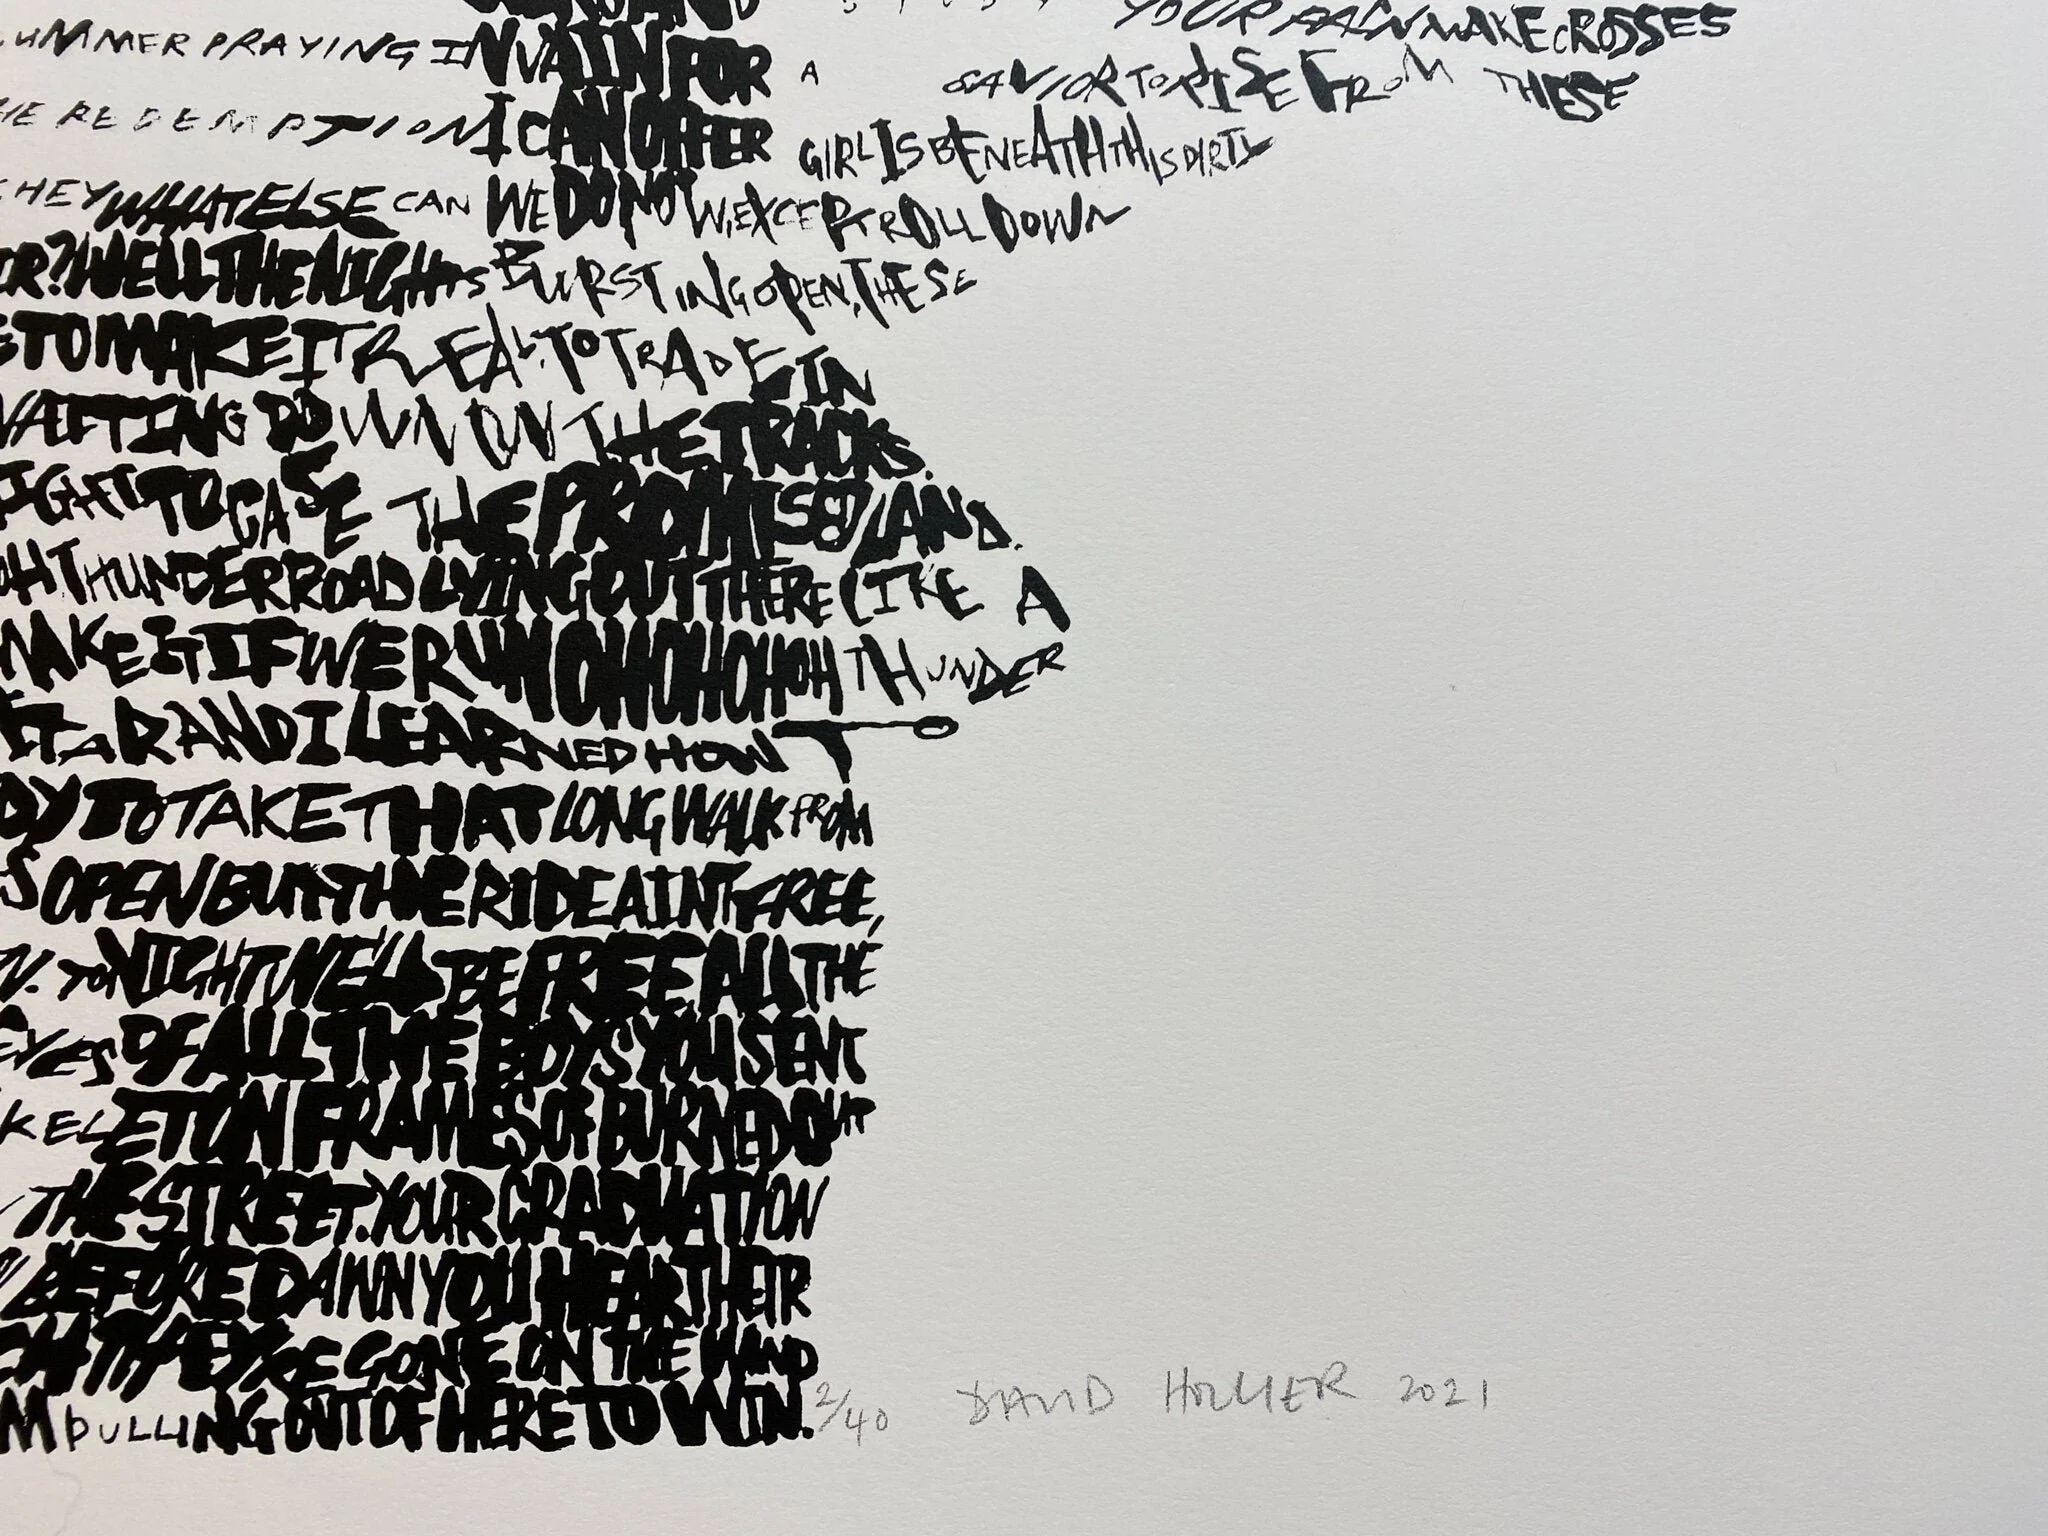 YOUR PAIN MAKE CROSSES
SUMMER PRAYING IN VAIN FOR A SAVIOR TO RISE FROM THESE
HE REDEMPTION I CAN OFFER GIRL IS BENEATH THIS DIRTY
HEY WHAT ELSE CAN WE DO NOW, EXCEPT ROLL DOWN
IR? WELL THE NIGHTS BURSTING OPEN, THESE
E TO MAKE IT REAL. TO TRADE IN
WAITING DOWN ON THE TRACKS.
IGHT TO CASE THE PROMISED LAND.
OH THUNDER ROAD LYING OUT THERE LIKE A
MAKE IT IF WE RUN OHOHOHOHOH THUNDER
ITAR AND I LEARNED HOW TO
DY TO TAKE THAT LONG WALK FROM
S OPEN BUT THE RIDE AINT FREE,
N. TONIGHT WE'LL BE FREE ALL THE
EYES OF ALL THE BOYS YOU SENT
KELETON FRAMES OF BURNED OUT
THE STREET. YOUR GRADUATION
BEFORE DAWN YOU HEAR THEIR
CH THEY'RE GONE ON THE WIND
M PULLING OUT OF HERE TO WIN.
2/40 DAVID HOLLIER 2021